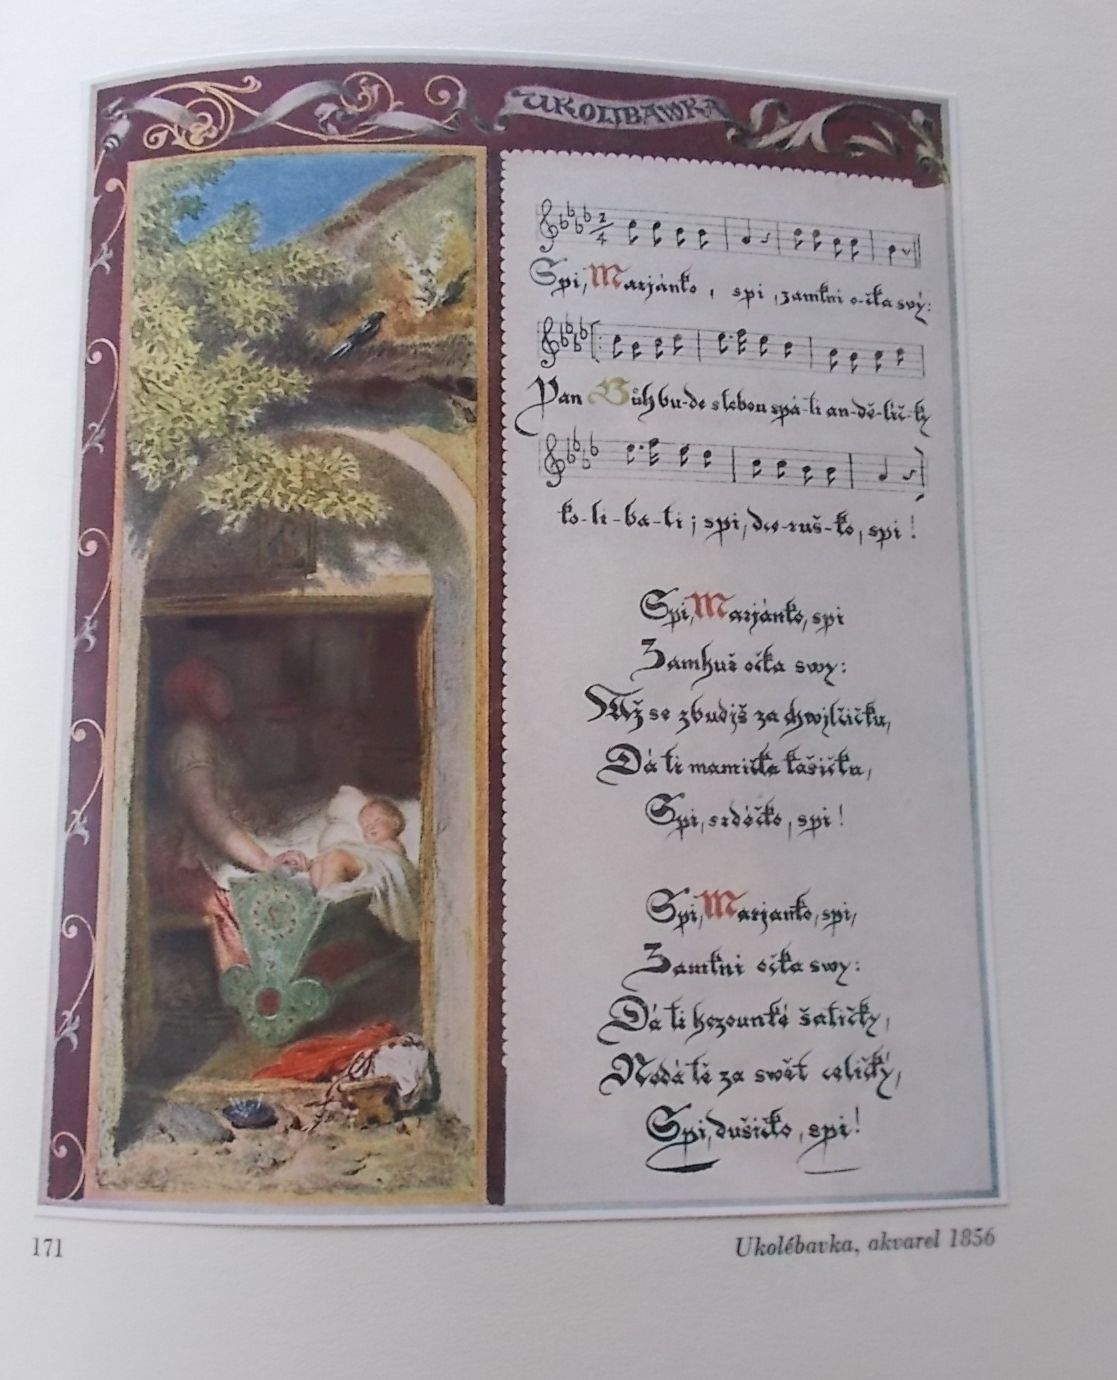 UKOLJBAWKA
Spi, Marjánko, spi, zamkni o-čka swý:
Pan Bůh bu-de s tebou spá-ti an-dě-lič-ky
ko-li-ba-ti; spi, dce-ruš-ko, spi!
Spi, Marjánko, spi
Zamhuř očka swy:
Až se zbudjš za chwjlčičku,
Dá ti mamička kašičku,
Spi, srdéčko, spi!
Spi, Marjanko, spi,
Zamkni očka swy:
Dá ti hezounké šatičky,
Nedá tě za swět celičký,
Spi, dušičko, spi!
171
Ukolébavka, akvarel 1856